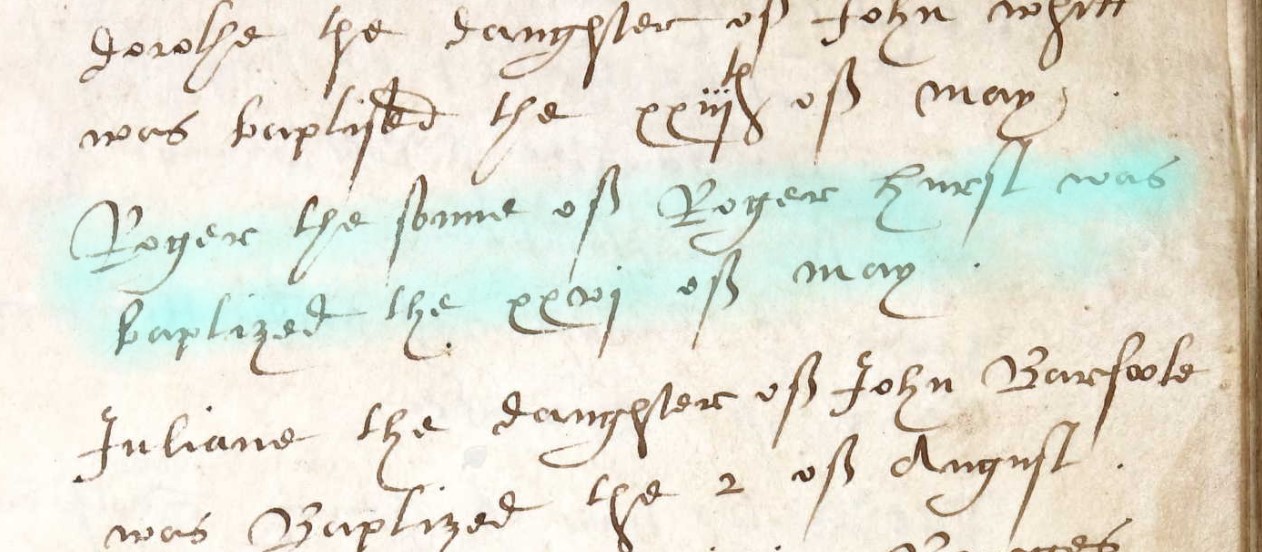 dorothe the daughter of John whitt
was baptised the xxiiith of may
Roger the sonne of Roger hurst was
baptized the xxvi of may .
Juliane the daughter of John Barfoote
was Baptized the 2 of August .